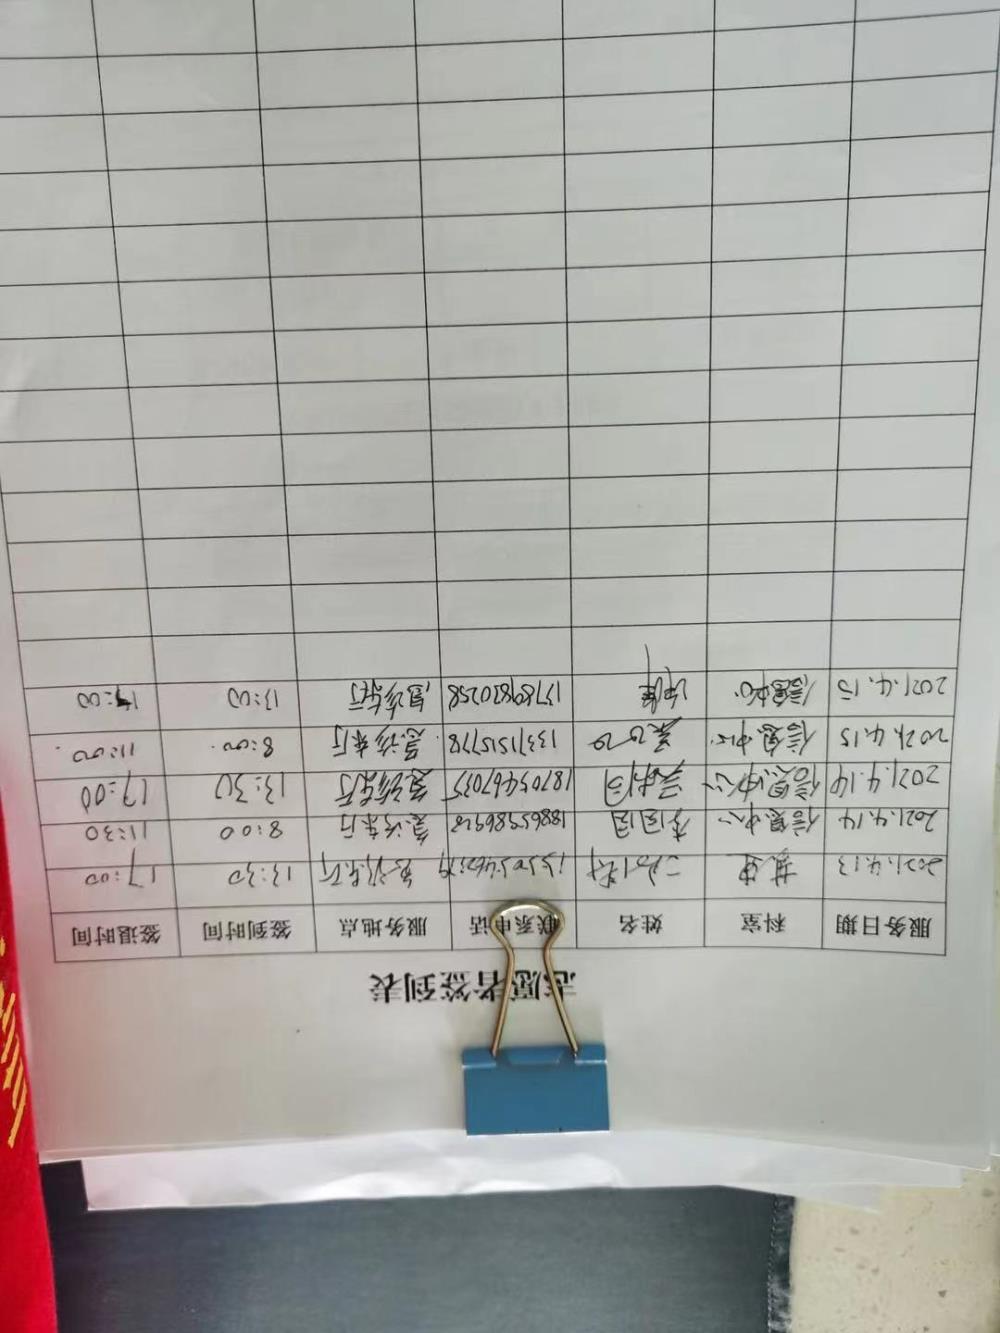 志愿者签到表
服务日期 科室 姓名 联系电话 服务地点 签到时间 签退时间
2021.4.13 13:30 17:00
2021.4.14 信息中心 李圆圆 18865986928 急诊东厅 8:00 11:30
2021.4.14 信息中心 18705467035 急诊东厅 13:30 17:00
2021.4.15 信息中心 13371515778 急诊东厅 8:00 11:00
2021.4.15 信息中心 13789820258 急诊东厅 13:00